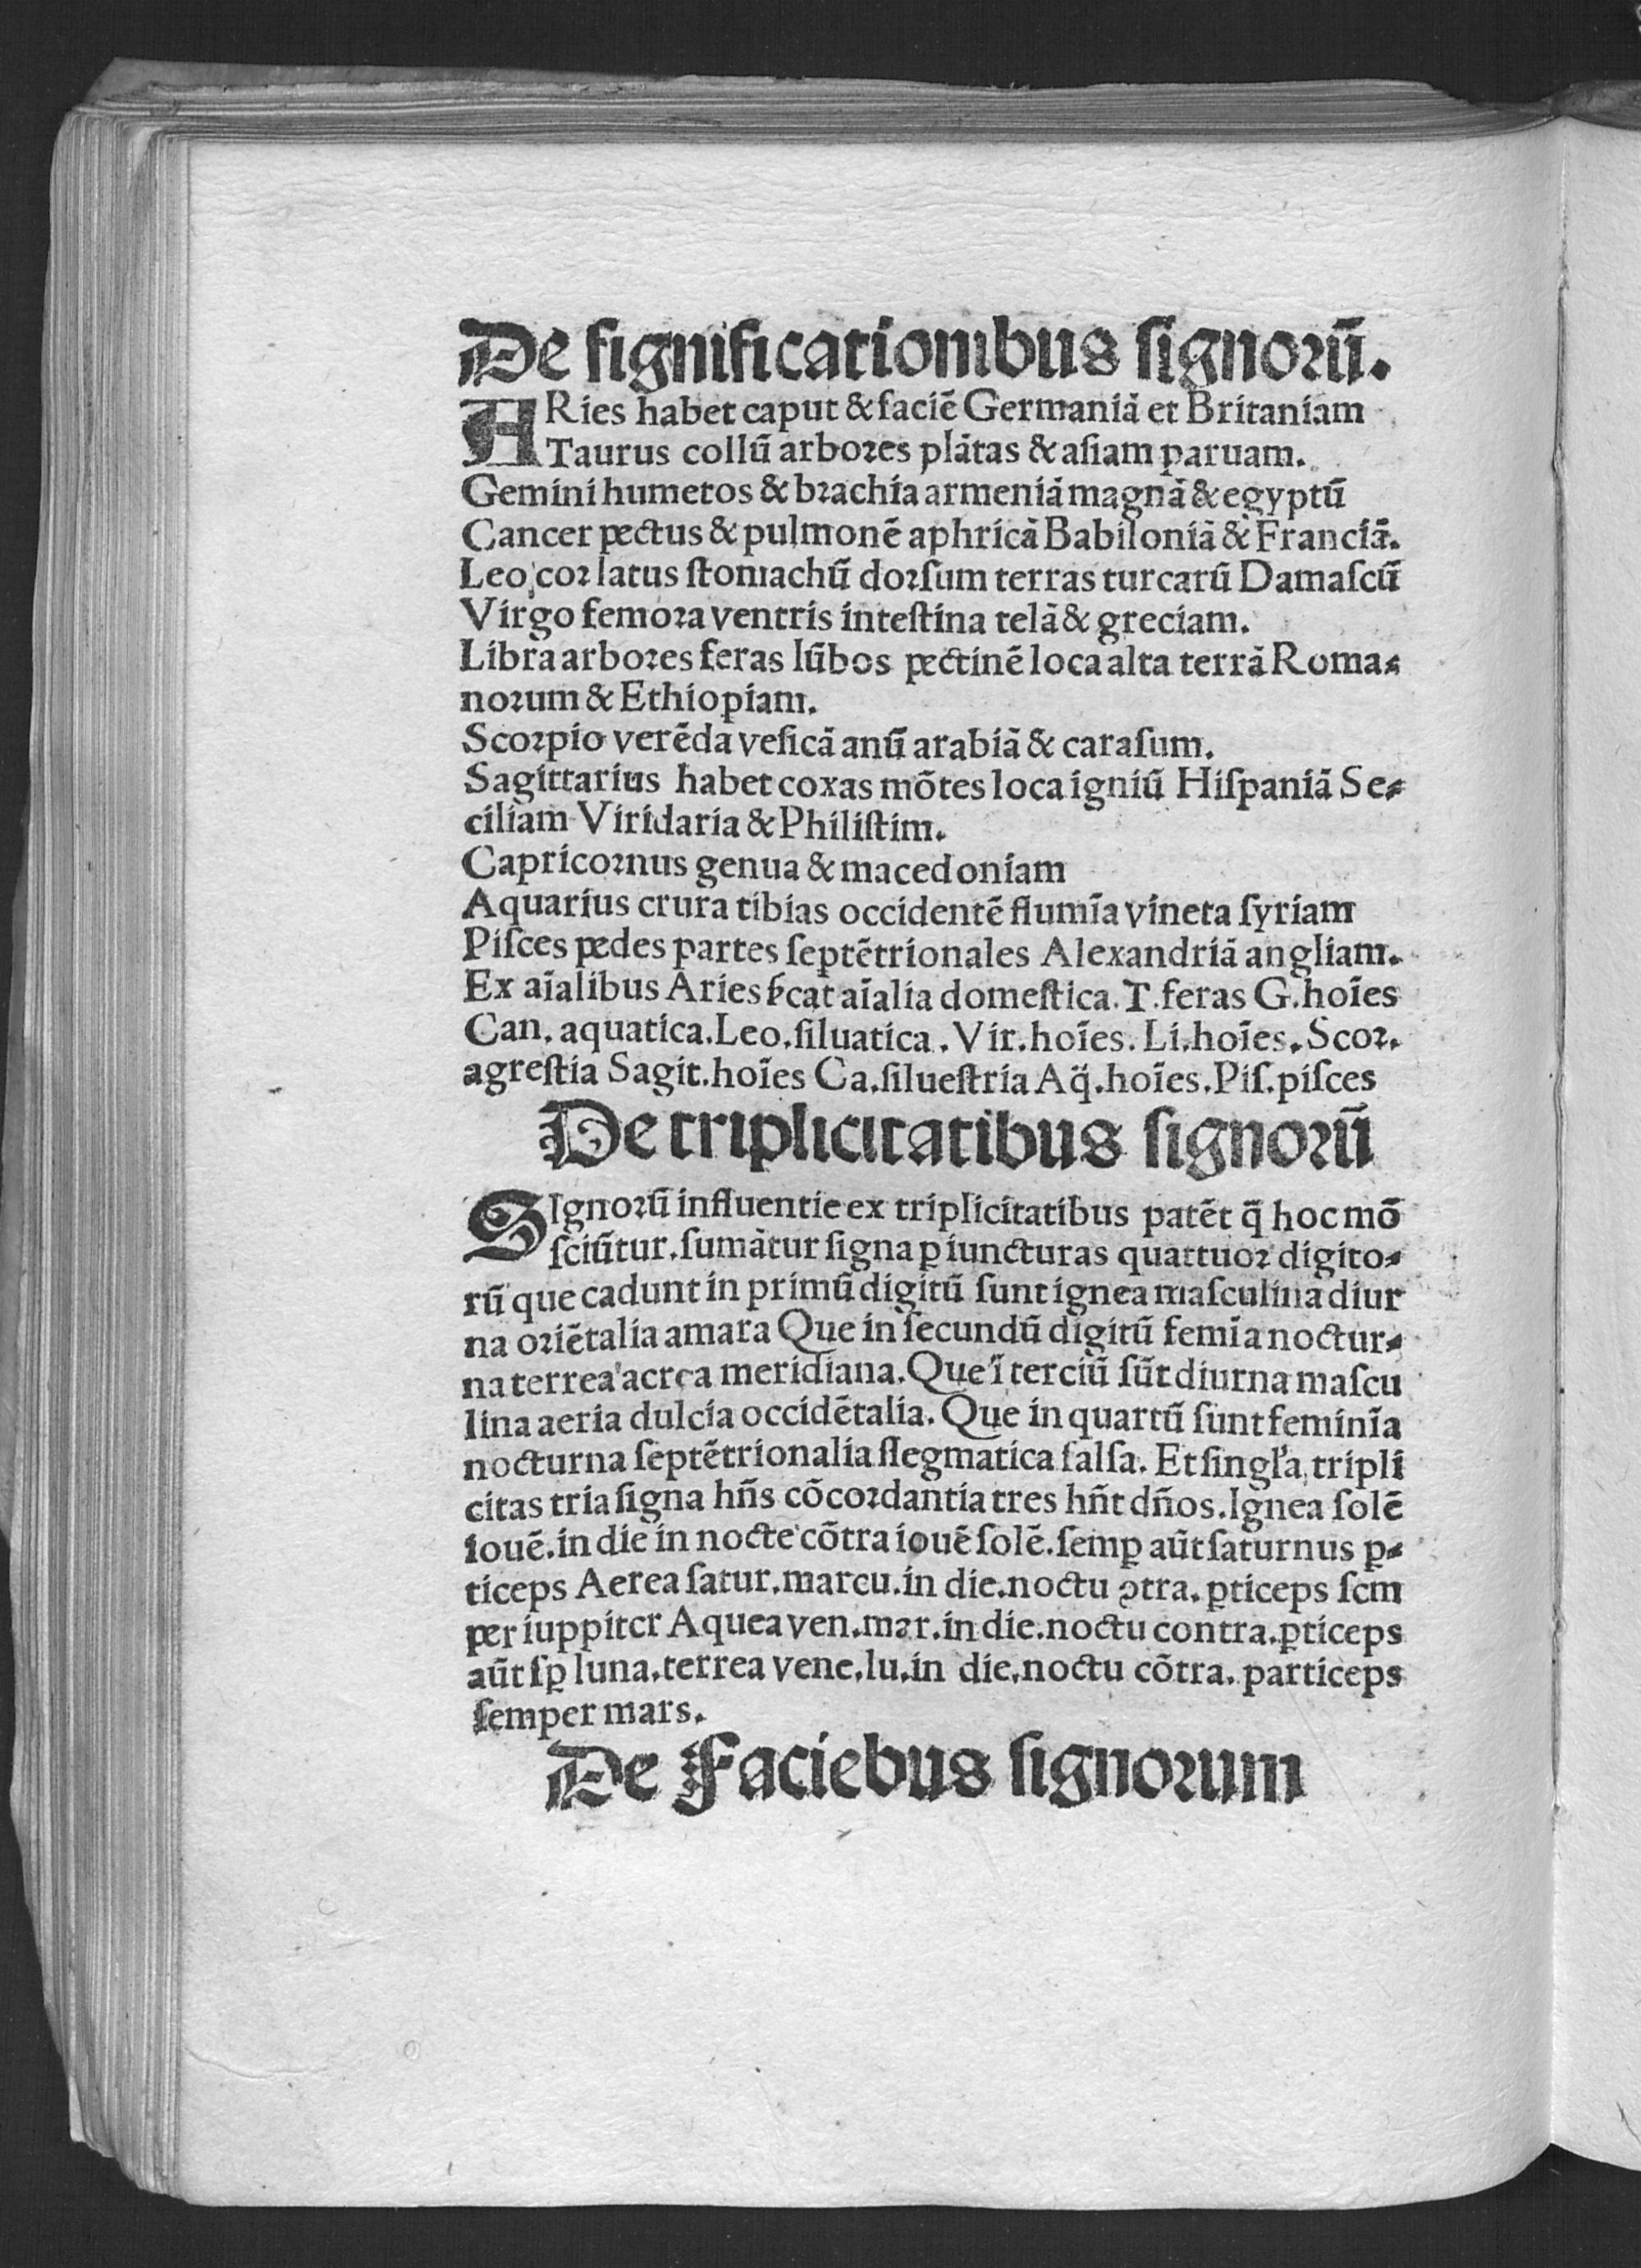 De ſignificationibus ſignorū.
ARies habet caput & faciē Germaniā et Britaniam
Taurus collū arbores plātas & aſiam paruam.
Gemini humeros & brachia armeniā magnā & egyptū
Cancer pectus & pulmonē aphricā Babiloniā & Franciā.
Leo cor latus ſtomachū dorſum terras turcarū Damaſcū
Virgo femora ventris inteſtina telā & greciam.
Libra arbores feras lūbos pectinē loca alta terrā Roma⸗
norum & Ethiopiam.
Scorpio verēda veſicā anū arabiā & caraſum.
Sagittarius habet coxas mōtes loca igniū Hiſpaniā Se⸗
ciliam Viridaria & Philiſtim.
Capricornus genua & macedoniam
Aquarius crura tibias occidentē flumīa vineta ſyriam
Piſces pedes partes ſeptētrionales Alexandriā angliam.
Ex aīalibus Aries ſ̄cat aīalia domeſtica. T. feras G. hoīes
Can. aquatica. Leo. ſiluatica. Vir. hoīes. Li. hoīes. Scor.
agreſtia Sagit. hoīes Ca. ſilueſtria Aq̄. hoīes. Piſ. piſces
De triplicitatibus ſignorū
SIgnorū influentie ex triplicitatibus patēt q̄ hoc mō
ſciūtur. ſumātur ſigna ꝑ iuncturas quattuor digito⸗
rū que cadunt in primū digitū ſunt ignea maſculina diur
na oriētalia amara Que in ſecundū digitū femīa noctur⸗
na terrea acrea meridiana. Que ī terciū ſūt diurna maſcu
lina aeria dulcia occidētalia. Que in quartū ſunt feminīa
nocturna ſeptētrionalia flegmatica ſalſa. Et ſingl'a tripli
citas tria ſigna hn̄s cōcordantia tres hn̄t dn̄os. Ignea ſolē
iouē. in die in nocte cōtra iouē ſolē. ſemꝑ aūt ſaturnus ꝑ⸗
ticeps Aerea ſatur. marcu. in die. noctu ꝯtra. ꝑticeps ſem
per iuppiter Aquea ven. mar. in die. noctu contra. ꝑticeps
aūt ſꝑ luna. terrea vene. lu. in die. noctu cōtra. particeps
ſemper mars.
De Faciebus ſignorum